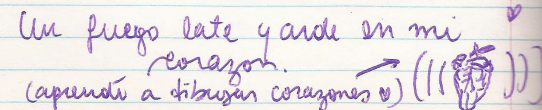 Un fuego late y arde en mi
corazon.
(aprendí a dibujar corazones ♥)